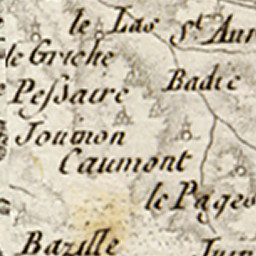 le Las
St Aur
le Griche
Badie
Pessaire
Joumon
Caumont
le Pages
Bazille
Juin